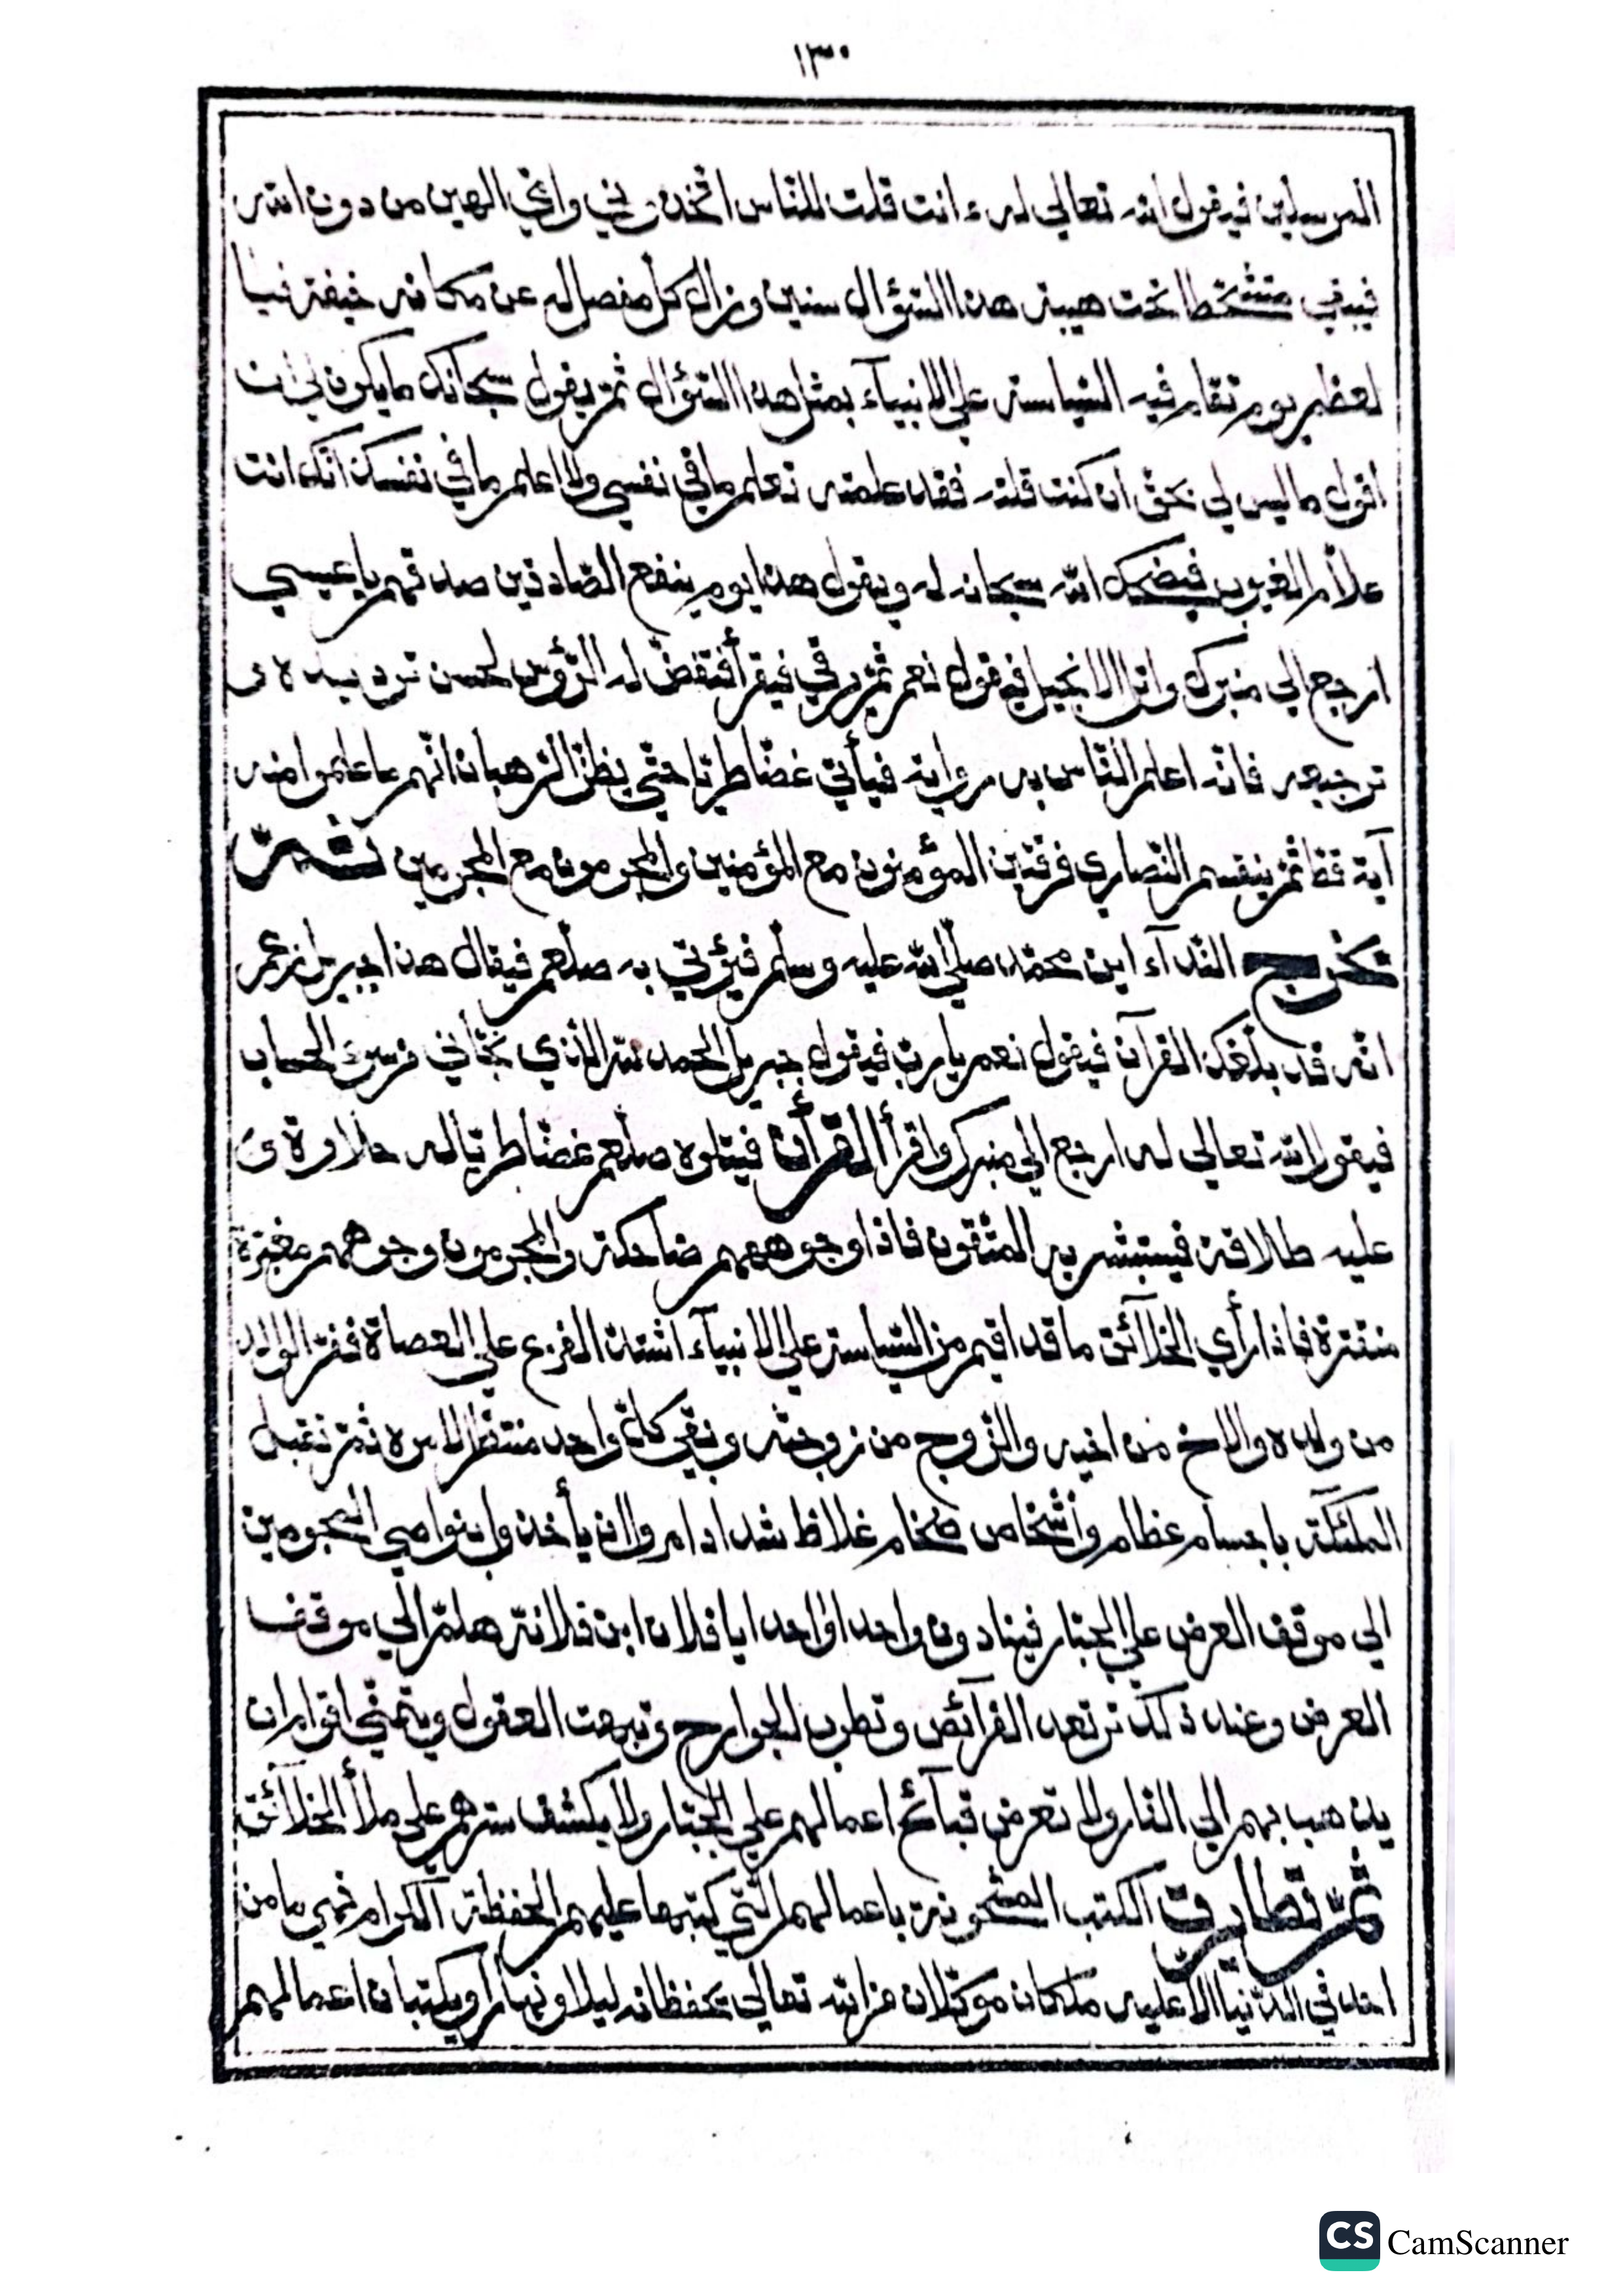 ١٣٠
المرسلين فيقول الله تعالي له ءانت قلت للنّاس اتّخذوني وامّي الهين من دون الله
فيبقي متشحّطا تحت هيبة هذا السّؤال سنين وزال كل مفصل له عن مكانه خيفة فيا
لعظم يوم تقام فيه السّياسة علي الانبيآء بمثل هذا السّؤال ثمّ يقول سبحانك ما يكون لي ان
اقول ما ليس لي بحقّ ان كنت قلته فقد علمته تعلم ما في نفسي ولا اعلم ما في نفسك انّك انت
علاّم الغيوب فيضحك الله سبحانه له ويقول هذا يوم ينفع الصّادقين صدقهم يا عيسي
ارجع الي منبرك واتل الانجيل فيقول نعم ثمّ يرقي فيقرأ فتنقضّ له الرّؤس لحسن ترديده و
ترجيعه فانّه اعلم النّاس به رواية فيأتي غضّا طريّا حتّي يظنّ الرّهبان انّهم ما علموا منه
آية قطّ ثمّ ينقسم النّصاري فرقتين المؤمنون مع المؤمنين والمجرمون مع المجرمين ثمّ
يخرج النّدآء اين محمّد صلّي الله عليه وسلّم فيؤتي به صلّعم فيقال هذا جبريل زعم
انّه قد بلّغك القرآن فيقول نعم يا ربّ فيقول جبريل الحمد لله الّذي نجّاني من سوء الحساب
فيقول الله تعالي له ارجع الي منبرك واقرأ القرأن فيتلوه صلّعم غضّا طريّا له حلاوة و
عليه طلاقة فيستبشر به المتّقون فاذا وجوههم ضاحكة والمجرمون وجوههم مغبرّة
مقترة فاذا رأي الخلآئق ما قد اقيم من السّياسة علي الانبيآء اشتدّ الفزع علي العصاة ففرّ الوالد
من ولده والاخ من اخيه والزّوج من زوجته وبقي كلّ واحد منتظرا لامره ثمّ تقبل
الملئكة باجسام عظام واشخاص ضخام غلاظ شداد امروا ان يأخذوا بنواصي المجرمين
الي موقف العرض علي الجبّار فينادون واحدا واحدا يا فلان ابن فلانة هلمّ الي موقف
العرض وعند ذلك ترتعد الفرآئص وتطرب الجوارح وتبهت العقول ويتمنّي اقوام ان
يذهب بهم الي النّار ولا تعرض قبآئح اعمالهم علي الجبّار ولا يكشف سترهم علي ملأ الخلآئق
ثمّ تطاير الكتب المشحونة باعمالهم الّتي كتبها عليهم الحفظة الكرام فهي ما من
احد في الدّنيا الا عليه ملكان موكّلان من الله تعالي يحفظانه ليلا ونهارا ويكتبان اعمالهم
CS CamScanner